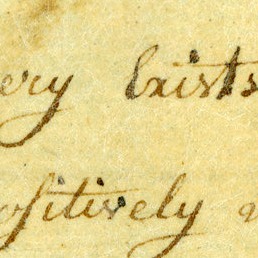 ery Exists
ositively